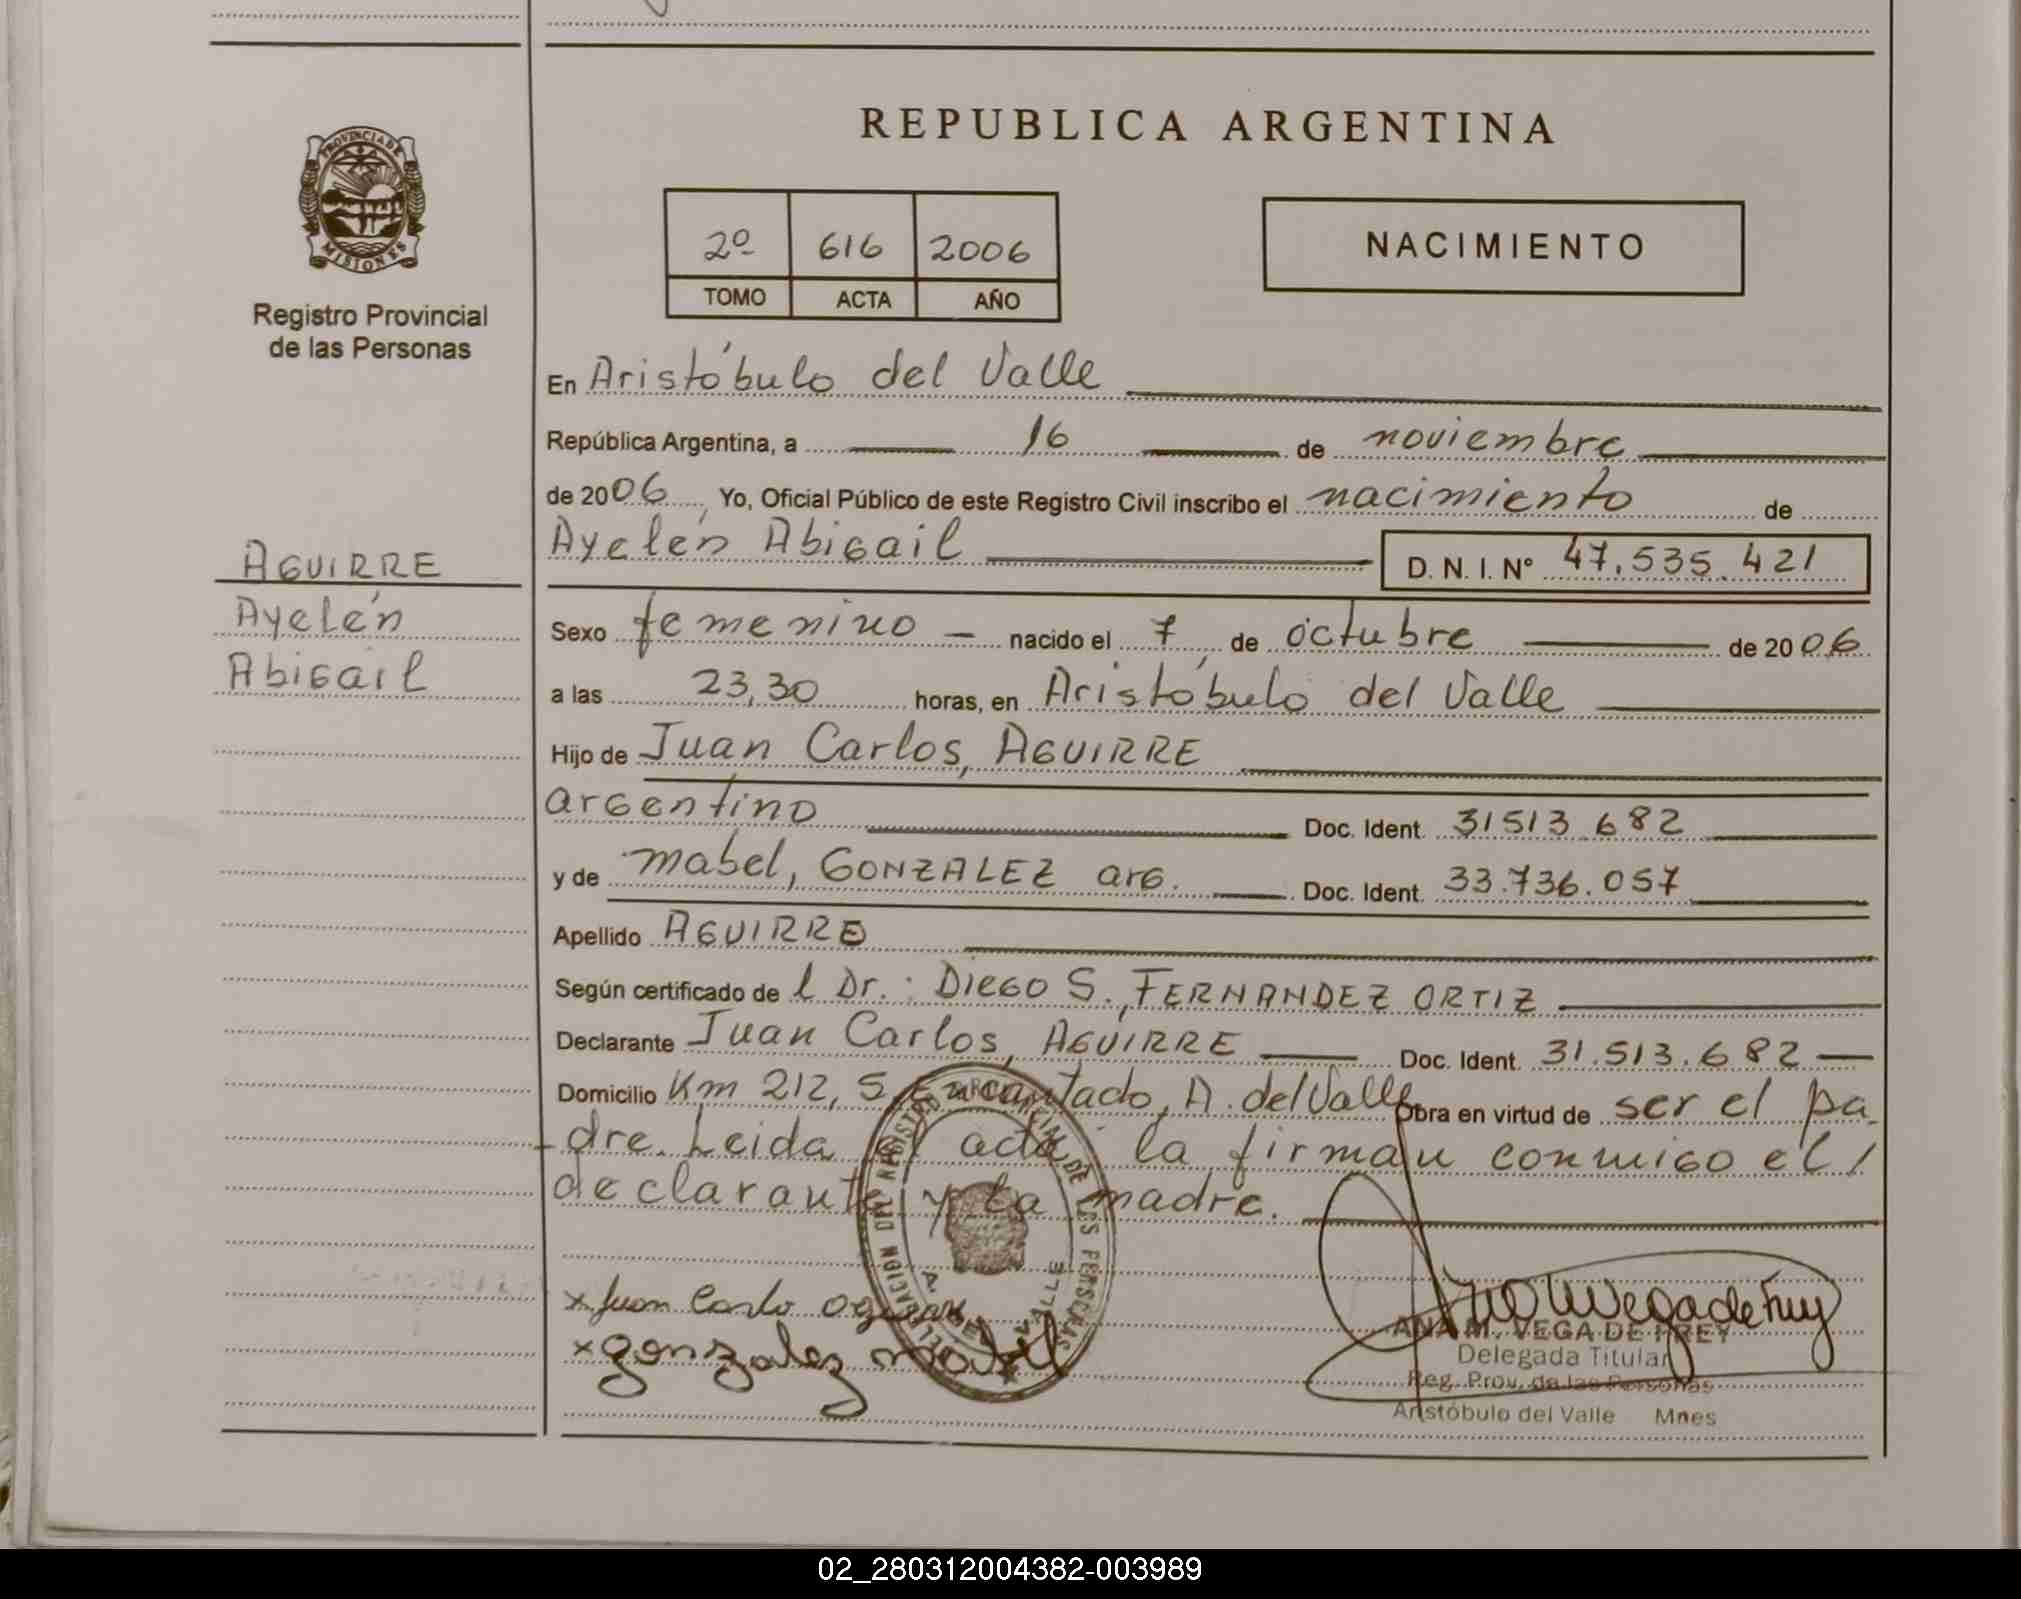 REPUBLICA ARGENTINA
PROVINCIA DE
MISIONES
Registro Provincial
de las Personas
2º 616 2006
TOMO ACTA AÑO
NACIMIENTO
En Aristóbulo del Valle
República Argentina, a 16 de noviembre
de 2006, Yo, Oficial Público de este Registro Civil inscribo el nacimiento de
Ayelén Abigail D. N. I. Nº 47.535.421
AGUIRRE
Ayelén
Abigail
Sexo femenino - nacido el 7 de octubre de 2006
a las 23,30 horas, en Aristóbulo del Valle
Hijo de Juan Carlos, AGUIRRE
argentino Doc. Ident. 31513.682
y de Mabel, GONZALEZ arg. Doc. Ident. 33.736.057
Apellido AGUIRRE
Según certificado de l Dr.: Diego S. FERNANDEZ ORTIZ
Declarante Juan Carlos, AGUIRRE Doc. Ident. 31.513.682
Domicilio Km 212, S. Encantado, A. del Valle Obra en virtud de ser el pa-
dre. Leida el acta, la firman conmigo el /
declarante y la madre.
x Juan Carlo Aguirre
x gonzalez mabel
DELEGACION DEL REGISTRO PROVINCIAL DE LAS PERSONAS
A. DEL VALLE
ANA M. VEGA DE FREY
Delegada Titular
Reg. Prov. de las Personas
Aristóbulo del Valle Mnes
02_280312004382-003989